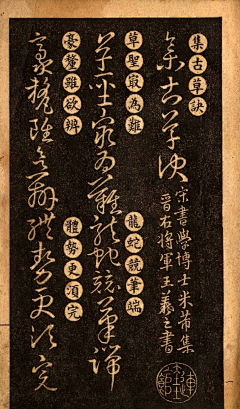 集古草訣
集古草訣
宋書學博士米芾集
晉右將軍王羲之書
草聖冣為難
龍蛇競筆端
草聖冣為難龍蛇競筆端
豪釐雖欲辨
體勢更湏完
豪釐雖欲辨體勢更須完